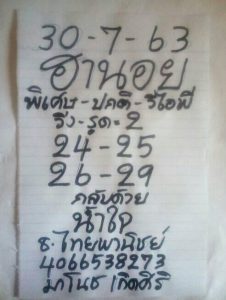 30-7-63
ฮานอย
พิเศษ-ปกติ-วีไอพี
วิ่ง-รูด=2
24-25
26-29
กลับด้วย
น้ำใจ
ธ.ไทยพานิชย์
4066538273
มาโนช เกิดศิริ